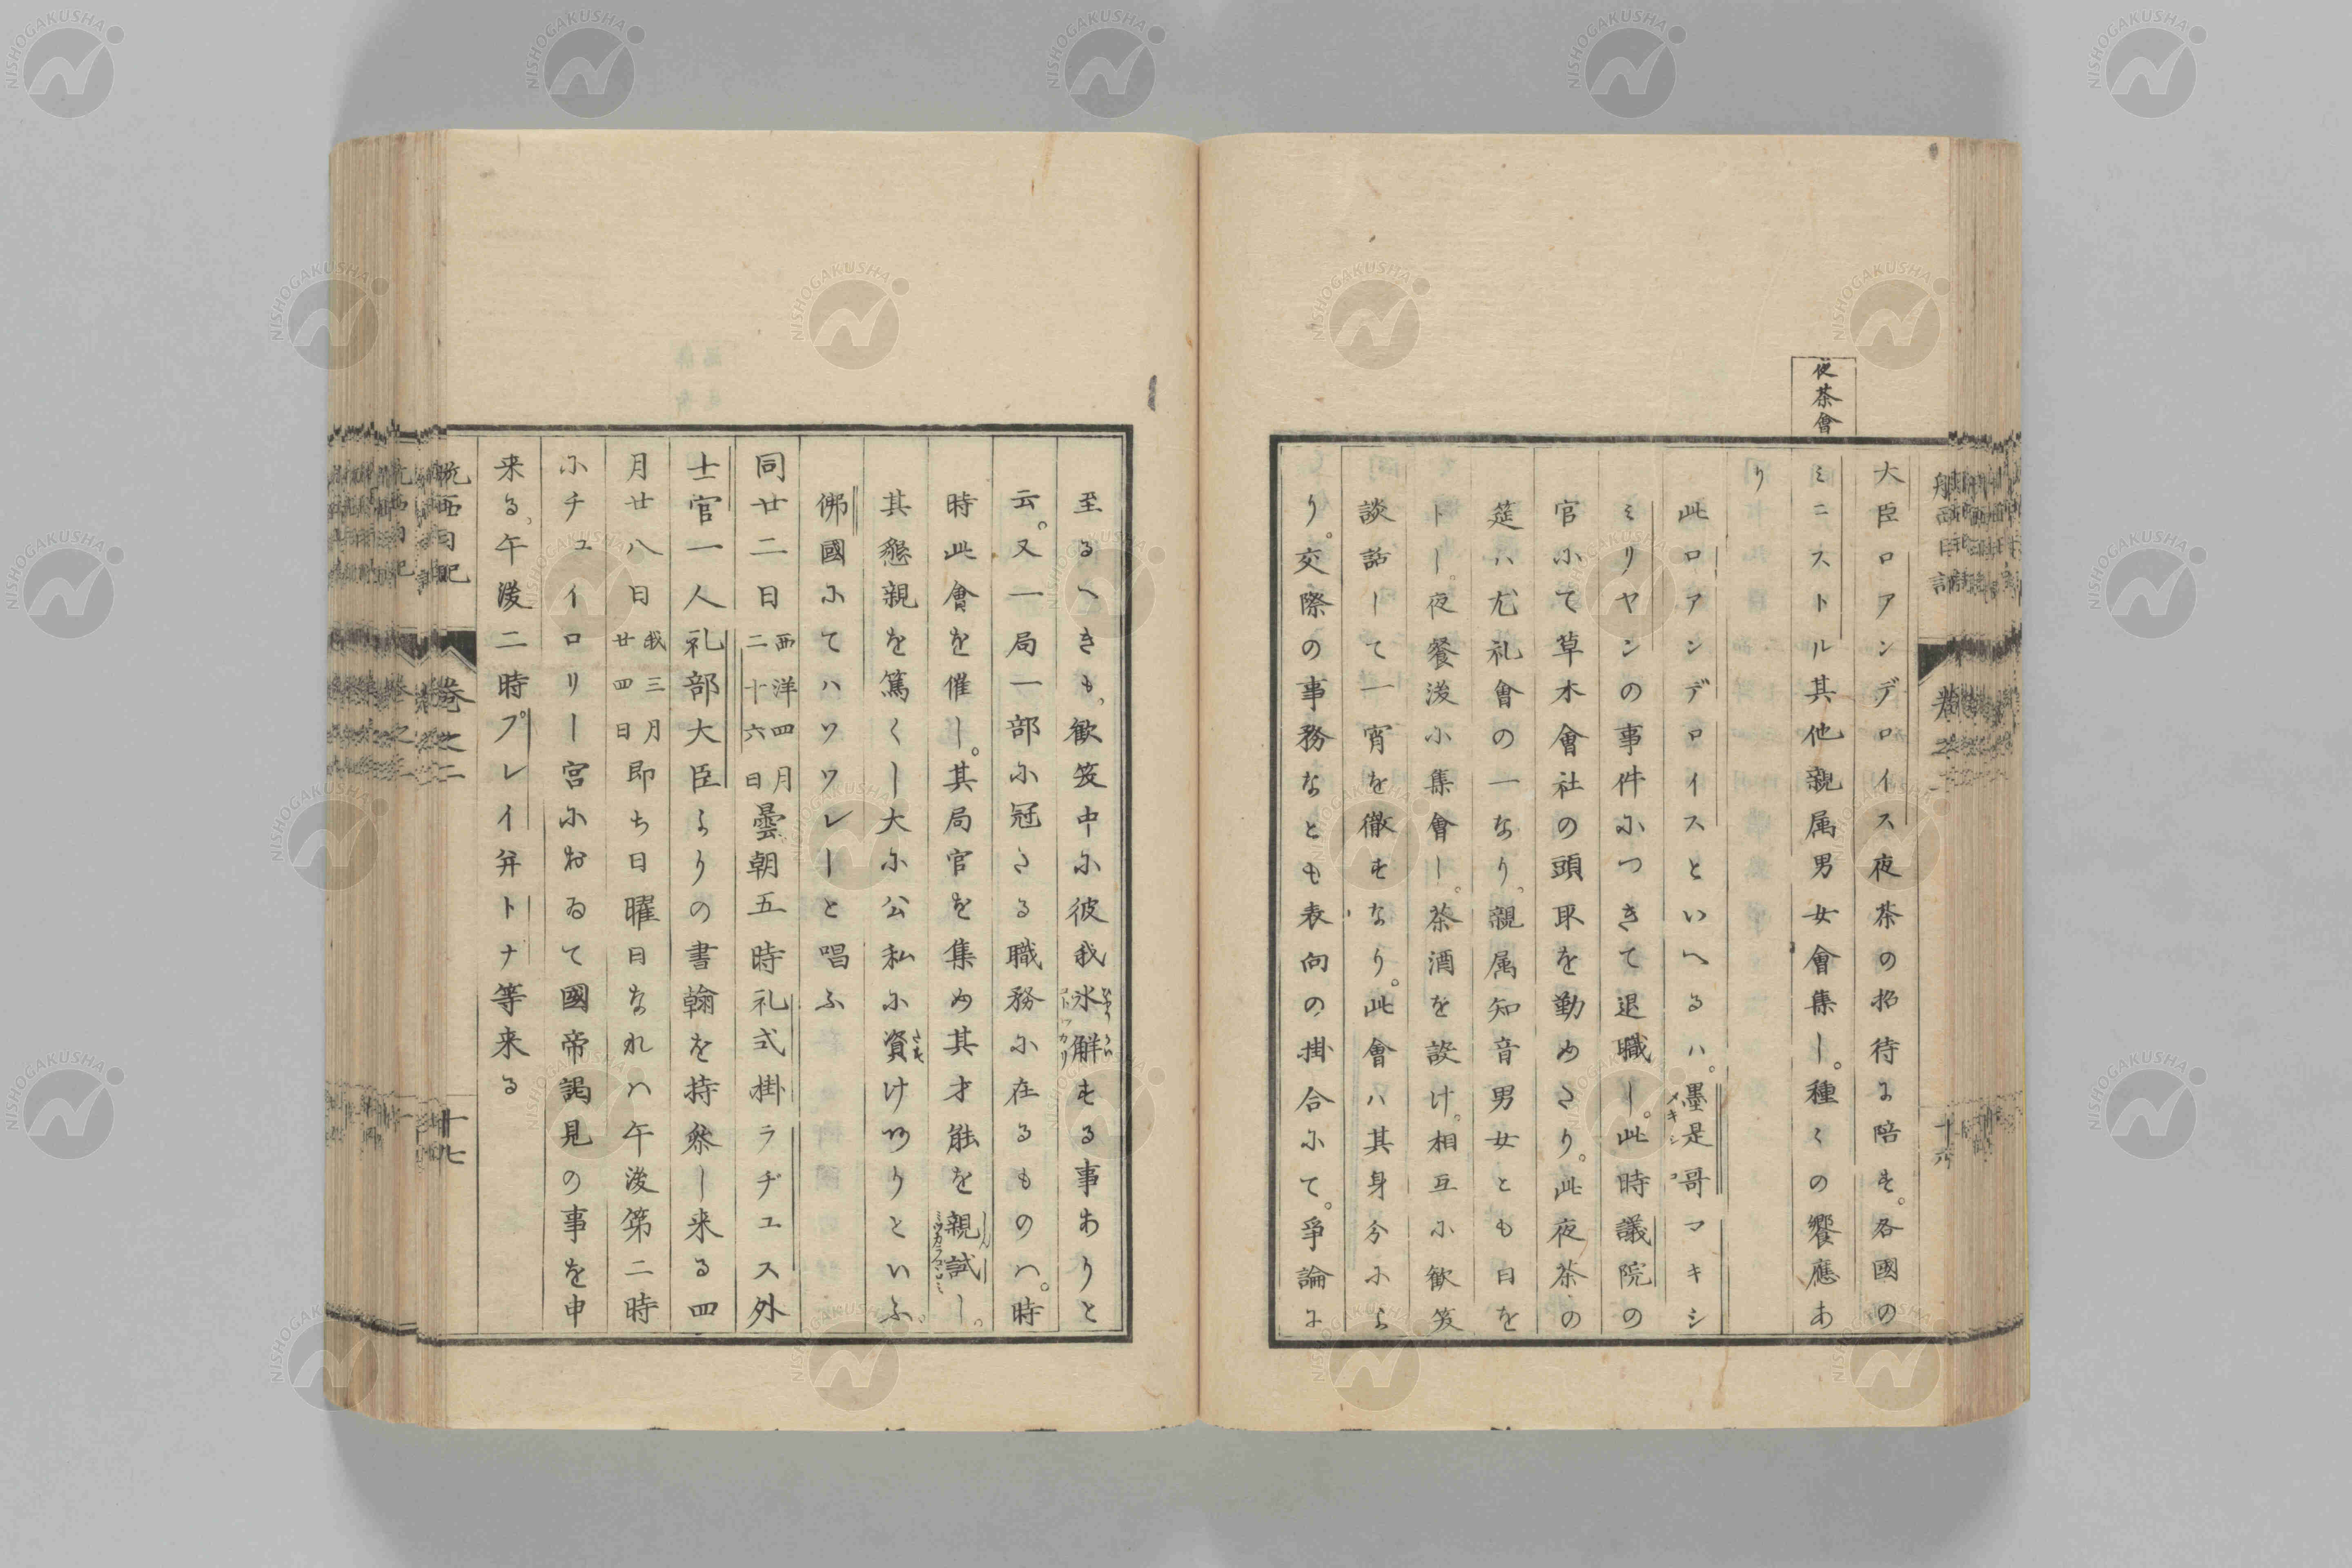 夜茶會
大臣ロアンデロイス夜茶の招待に陪す。各國の
ミニストル其他親属男女會集し。種〻の饗應あ
り
此ロアンデロイスといへるハ。墨是哥マキシ
メキシコ
ミリヤンの事件につきて退職し。此時議院の
官にて草木會社の頭取を勤めたり。此夜茶の
筵ハ尤礼會の一なり。親属知音男女とも日を
トし。夜餐後小集會し。茶酒を設け。相互に歓笑
談話して一宵を徹すなり。此會ハ其身分によ
り。交際の事務なとも表向の掛合にて。爭論に
十六
至るへきも、歓笑中に彼我氷解する事ありと
云。又一局一部に冠たる職務に在るものハ。時
時此會を催し。其局官を集め其才能を親試し。
ミツカラコヽロミ
其懇親を篤くし大に公私に資けありといふ。
たす
佛國にてハワワレーと唱ふ
同廿二日西洋四月二十六日曇朝五時礼式掛ラヂエス外
士官一人礼部大臣よりの書翰を持參し来る四
月廿八日我三月廿四日即ち日曜日なれハ午後第二時
にチュイロリー宮におゐて國帝謁見の事を申
来る、午後二時プレイ并トナ等来る
航西日記
巻之二
十七
NISHOGAKUSHA